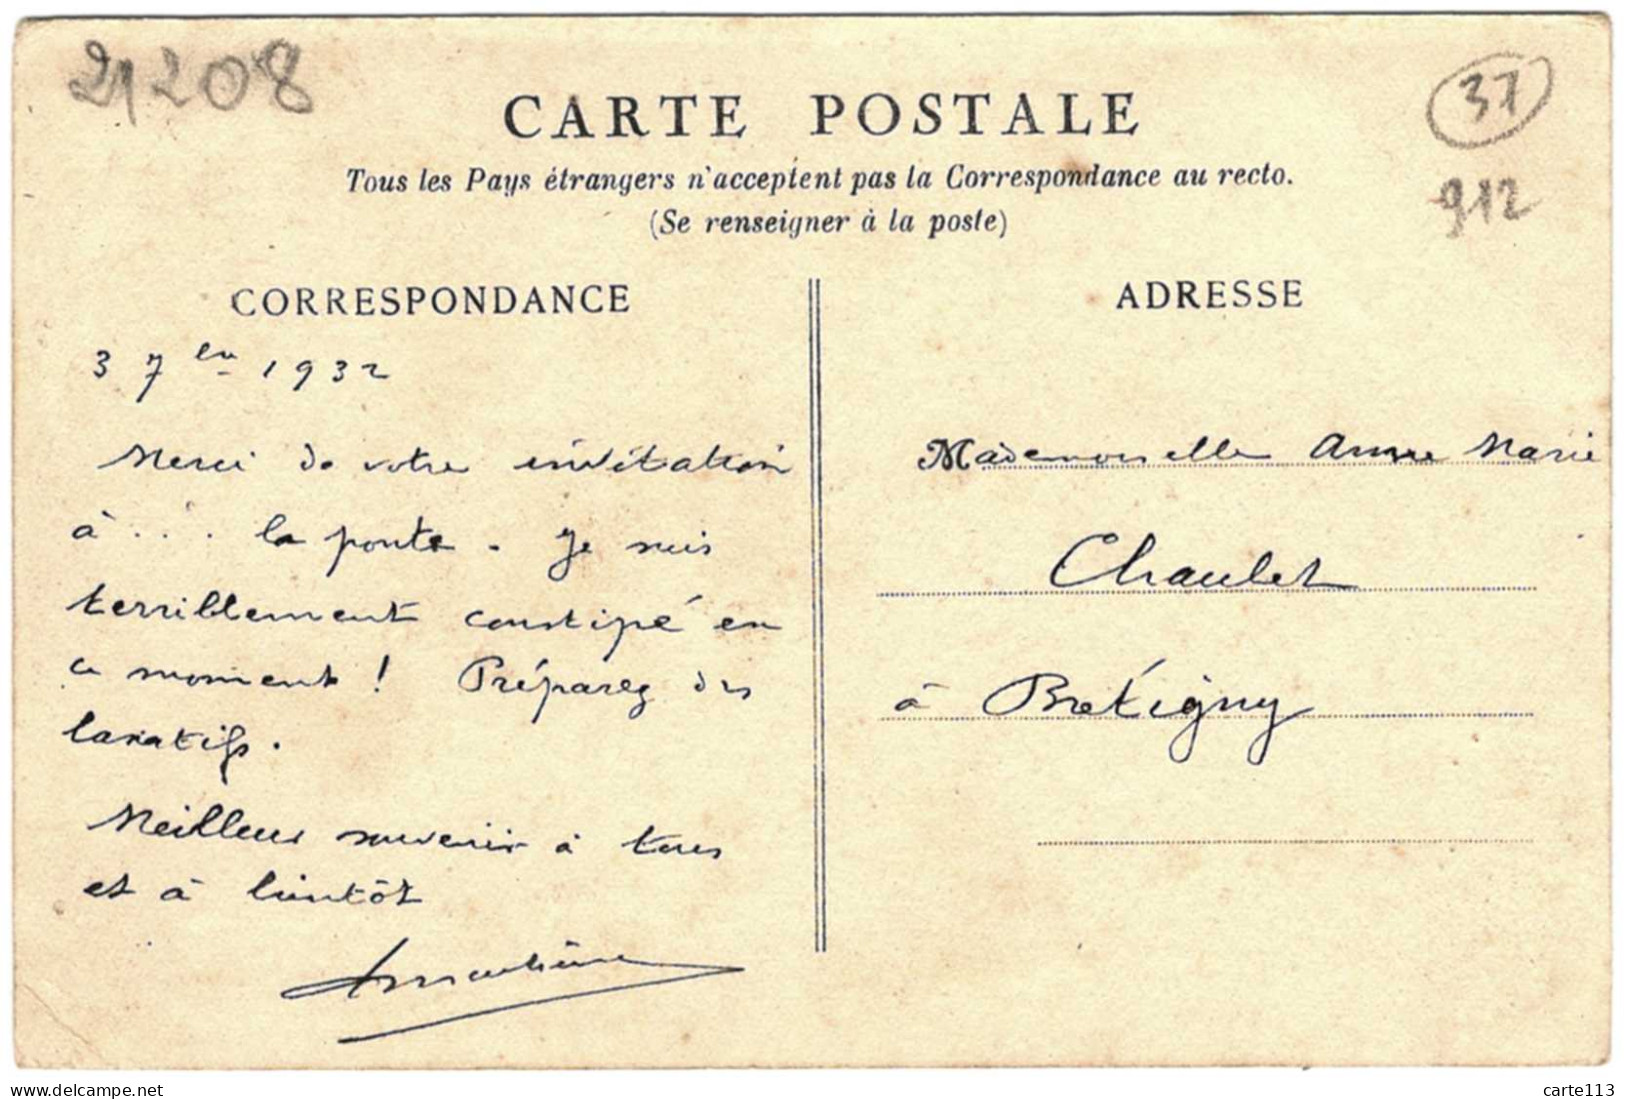 21208
CARTE POSTALE
37
Tous les Pays étrangers n'acceptent pas la Correspondance au recto.
912
(Se renseigner à la poste)
CORRESPONDANCE
3 7bre 1932
Merci de votre invitation
à ... la ponte. Je suis
terriblement constipé en
ce moment ! Préparez des
laxatifs.
Meilleur souvenir à tous
et à bientôt
ADRESSE
Mademoiselle Anne Marie
Chaulet
à Bretigny
delcampe.net
carte113